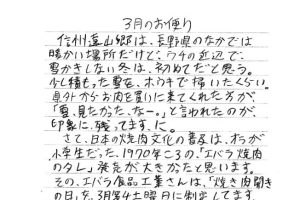 3月のお便り
信州遠山郷は、長野県のなかでは
暖かい場所だけど、ウチの近辺で
雪かきしない冬は、初めてだと思う。
少し積もった雪を、ホウキで掃いたくらい。
県外からお肉を買いに来てくれた方が、
「雪、見たかった、なー。」と言われたのが、
印象に残ってます、に。
さて、日本の焼肉文化の普及は、オラが
小学生だった、1970年ころの、「エバラ焼肉
のタレ」発売が大きかったと思います。
その、エバラ食品工業さんは、「焼き肉開き
の日」を、3月第4土曜日に制定してます。